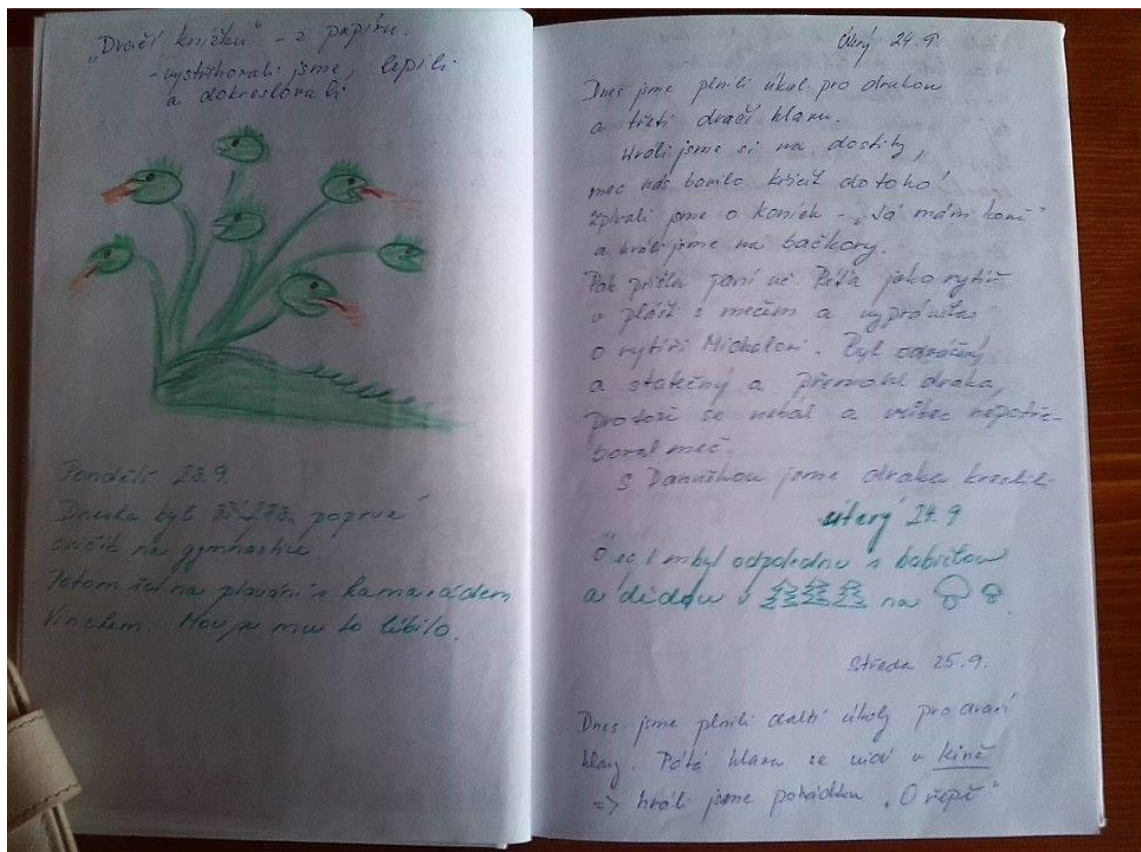 „Dračí knížku" - z papíru.
- vystřihovali jsme, lepili
a dokreslovali
Pondělí 23.9.
Dneska byl poprvé
cvičit na gymnastice.
Potom šel na plavání s kamarádem
Vinckem. Moc se mu to líbilo.
Úterý 24.9.
Dnes jsme plnili úkol pro druhou
a třetí dračí hlavu.
Hráli jsme si na dostihy,
moc nás bavilo křičet do toho!
Zpívali jsme o koních - „Já mám koně"
a hráli jsme na bačkory.
Pak přišla paní uč. Péťa jako rytíř
v plášti s mečem a vyprávěla
o rytíři Michalovi. Byl odvážný
a statečný a přemohl draka,
protože se nebál a vůbec nepotře-
boval meč.
S Danuškou jsme draka kreslili.
úterý 24.9
byl odpoledne s babičkou
a dědou v na
Středa 25.9.
Dnes jsme plnili další úkoly pro dračí
hlavy. Pátá hlava se vidí v kině
=> hráli jsme pohádku „O řepě"